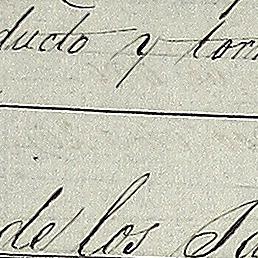 ducto y torn
de los Sa